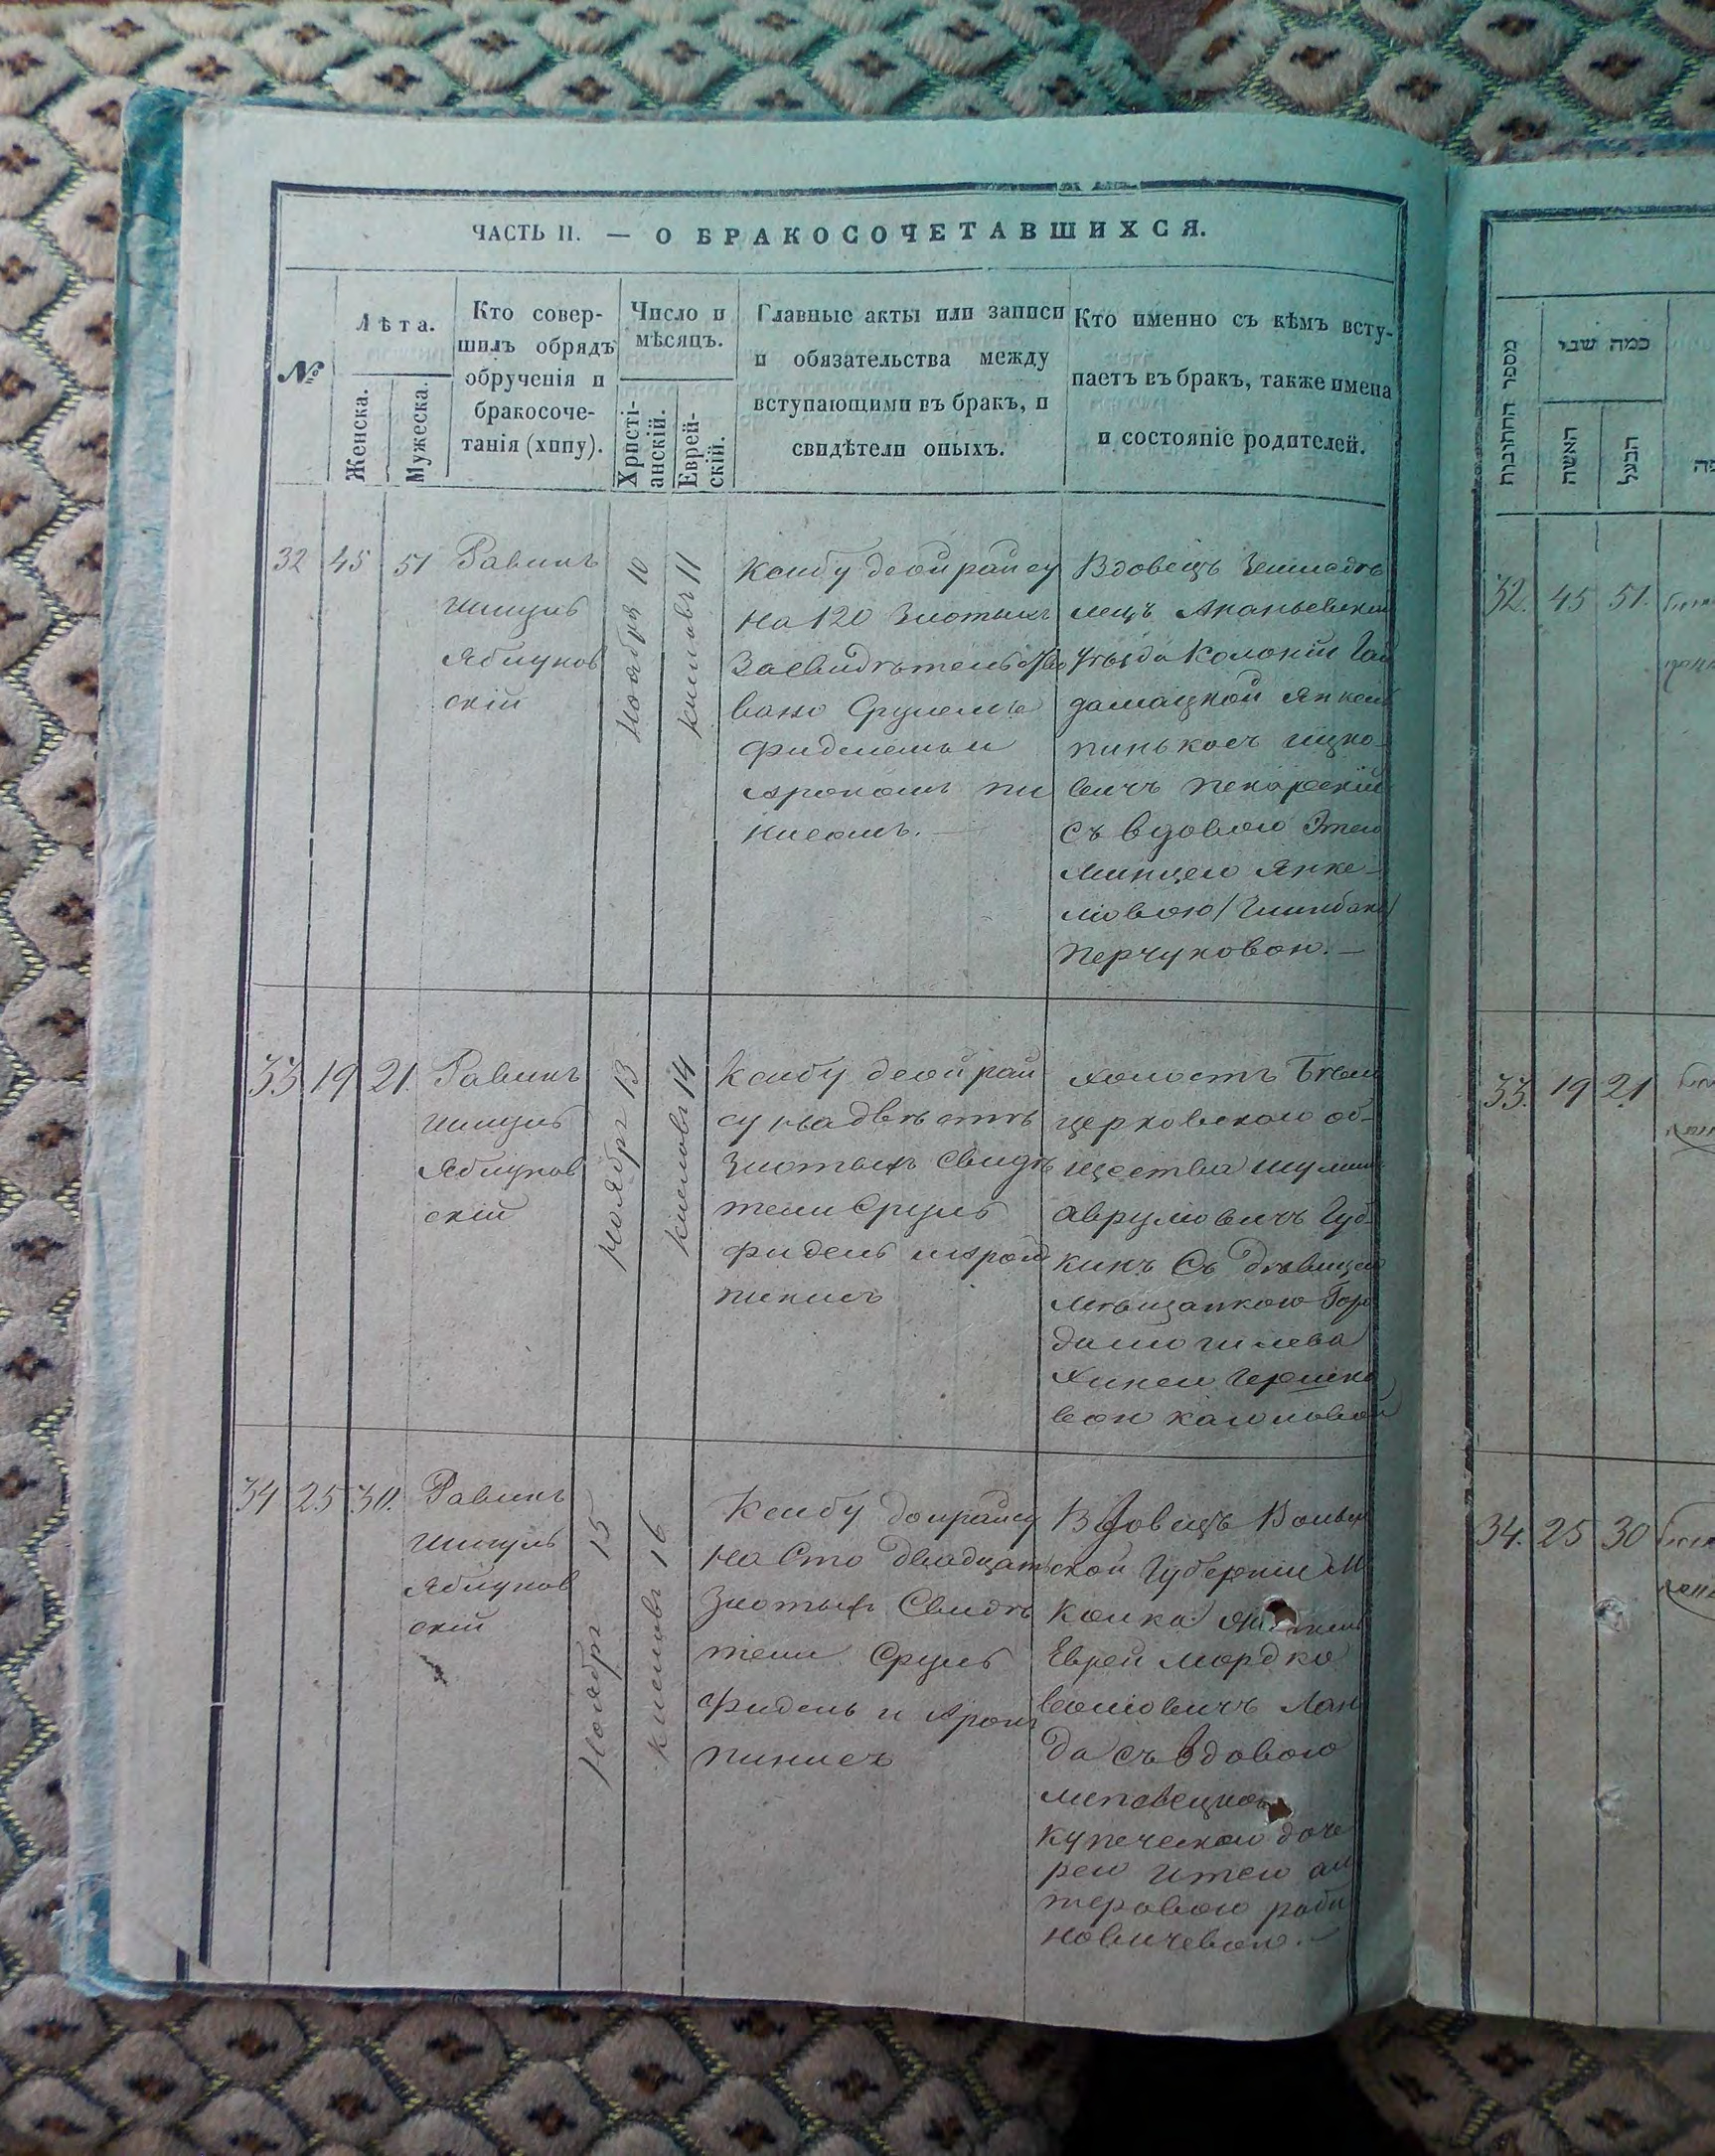 ЧАСТЬ II. — О БРАКОСОЧЕТАВШИХСЯ.
№
Лѣта.
Женска.
Мужеска.
Кто совер-
шилъ обрядъ
обрученія и
бракосоче-
танія (хипу).
Число и
мѣсяцъ.
Христі-
анскій.
Еврей-
скій.
Главные акты или записи
и обязательства между
вступающими въ бракъ, и
свидѣтели оныхъ.
Кто именно съ кѣмъ всту-
паетъ въ бракъ, также имена
и состояніе родителей.
32
45
51
Равинъ
Шмуль
Яблунов
скій
Ноября 10
Кисловъ 11
Ксибу деойрайсу
на 120 Злотыхъ
Засвидѣтельство
вано Срулемъ
Фиделемъ и
Арономъ Пи
нисомъ. —
Вдовецъ Землед
лецъ Ананьевска
Уѣзда Колоніи Гай
дамацкой Янкель
Пинькосъ Ицко-
вичъ Пекарскій
съ вдовою Этею
Минцею Янке-
лiовою
Перчуковою. —
33
19
21
Равинъ
Шмуль
Яблунов
скій
Ноябрь 13
Кисловъ 14
Ксибу деойрай
су на двѣстѣ
Злотыхъ Свидѣ
тели Сруль
Фидель и Арон
Пинисъ
Холостъ Бѣло
церковскаго об-
щества Шулим
Аврумовичъ Губ-
кинъ Съ дѣвицею
Мѣщанкою Горо
да Могилева
Хинею Гершко
вою
34
25
30.
Равинъ
Шмуль
Яблунов
скій
Ноябрь 15
Кисловъ 16
Ксибу доирайсу
на Сто двадцать
Злотыхъ Свидѣ
тели Сруль
Фидель и Аронъ
Пинисъ
Вдовецъ Волын
ской Губерніи М
Еврей Мордко
Волiовичъ Лан
да съ вдовою
купеческою доче
рею Итею Ал
теровою Раби
новичевою. —
מספר החתונות
כמה שני
האשה
הבעל
32.
45
51.
33.
19
21
34.
25
30